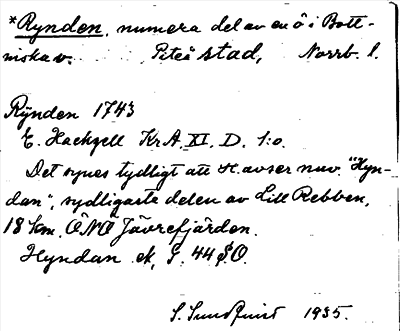 *Rynden, numera del av en ö i Bott-
niska v. Piteå stad, Norrb. l.
Rÿnden 1743
E. Hackzell KrA. XI. D. 1:o.
Det synes tydligt att H. avser nuv. "Hyn-
dan", sydligaste delen av Lill Rebben,
18 km. ÖNÖ Jävrefjärden.
Hyndan ek, G. 44 SO.
S. Sundqvist 1935.